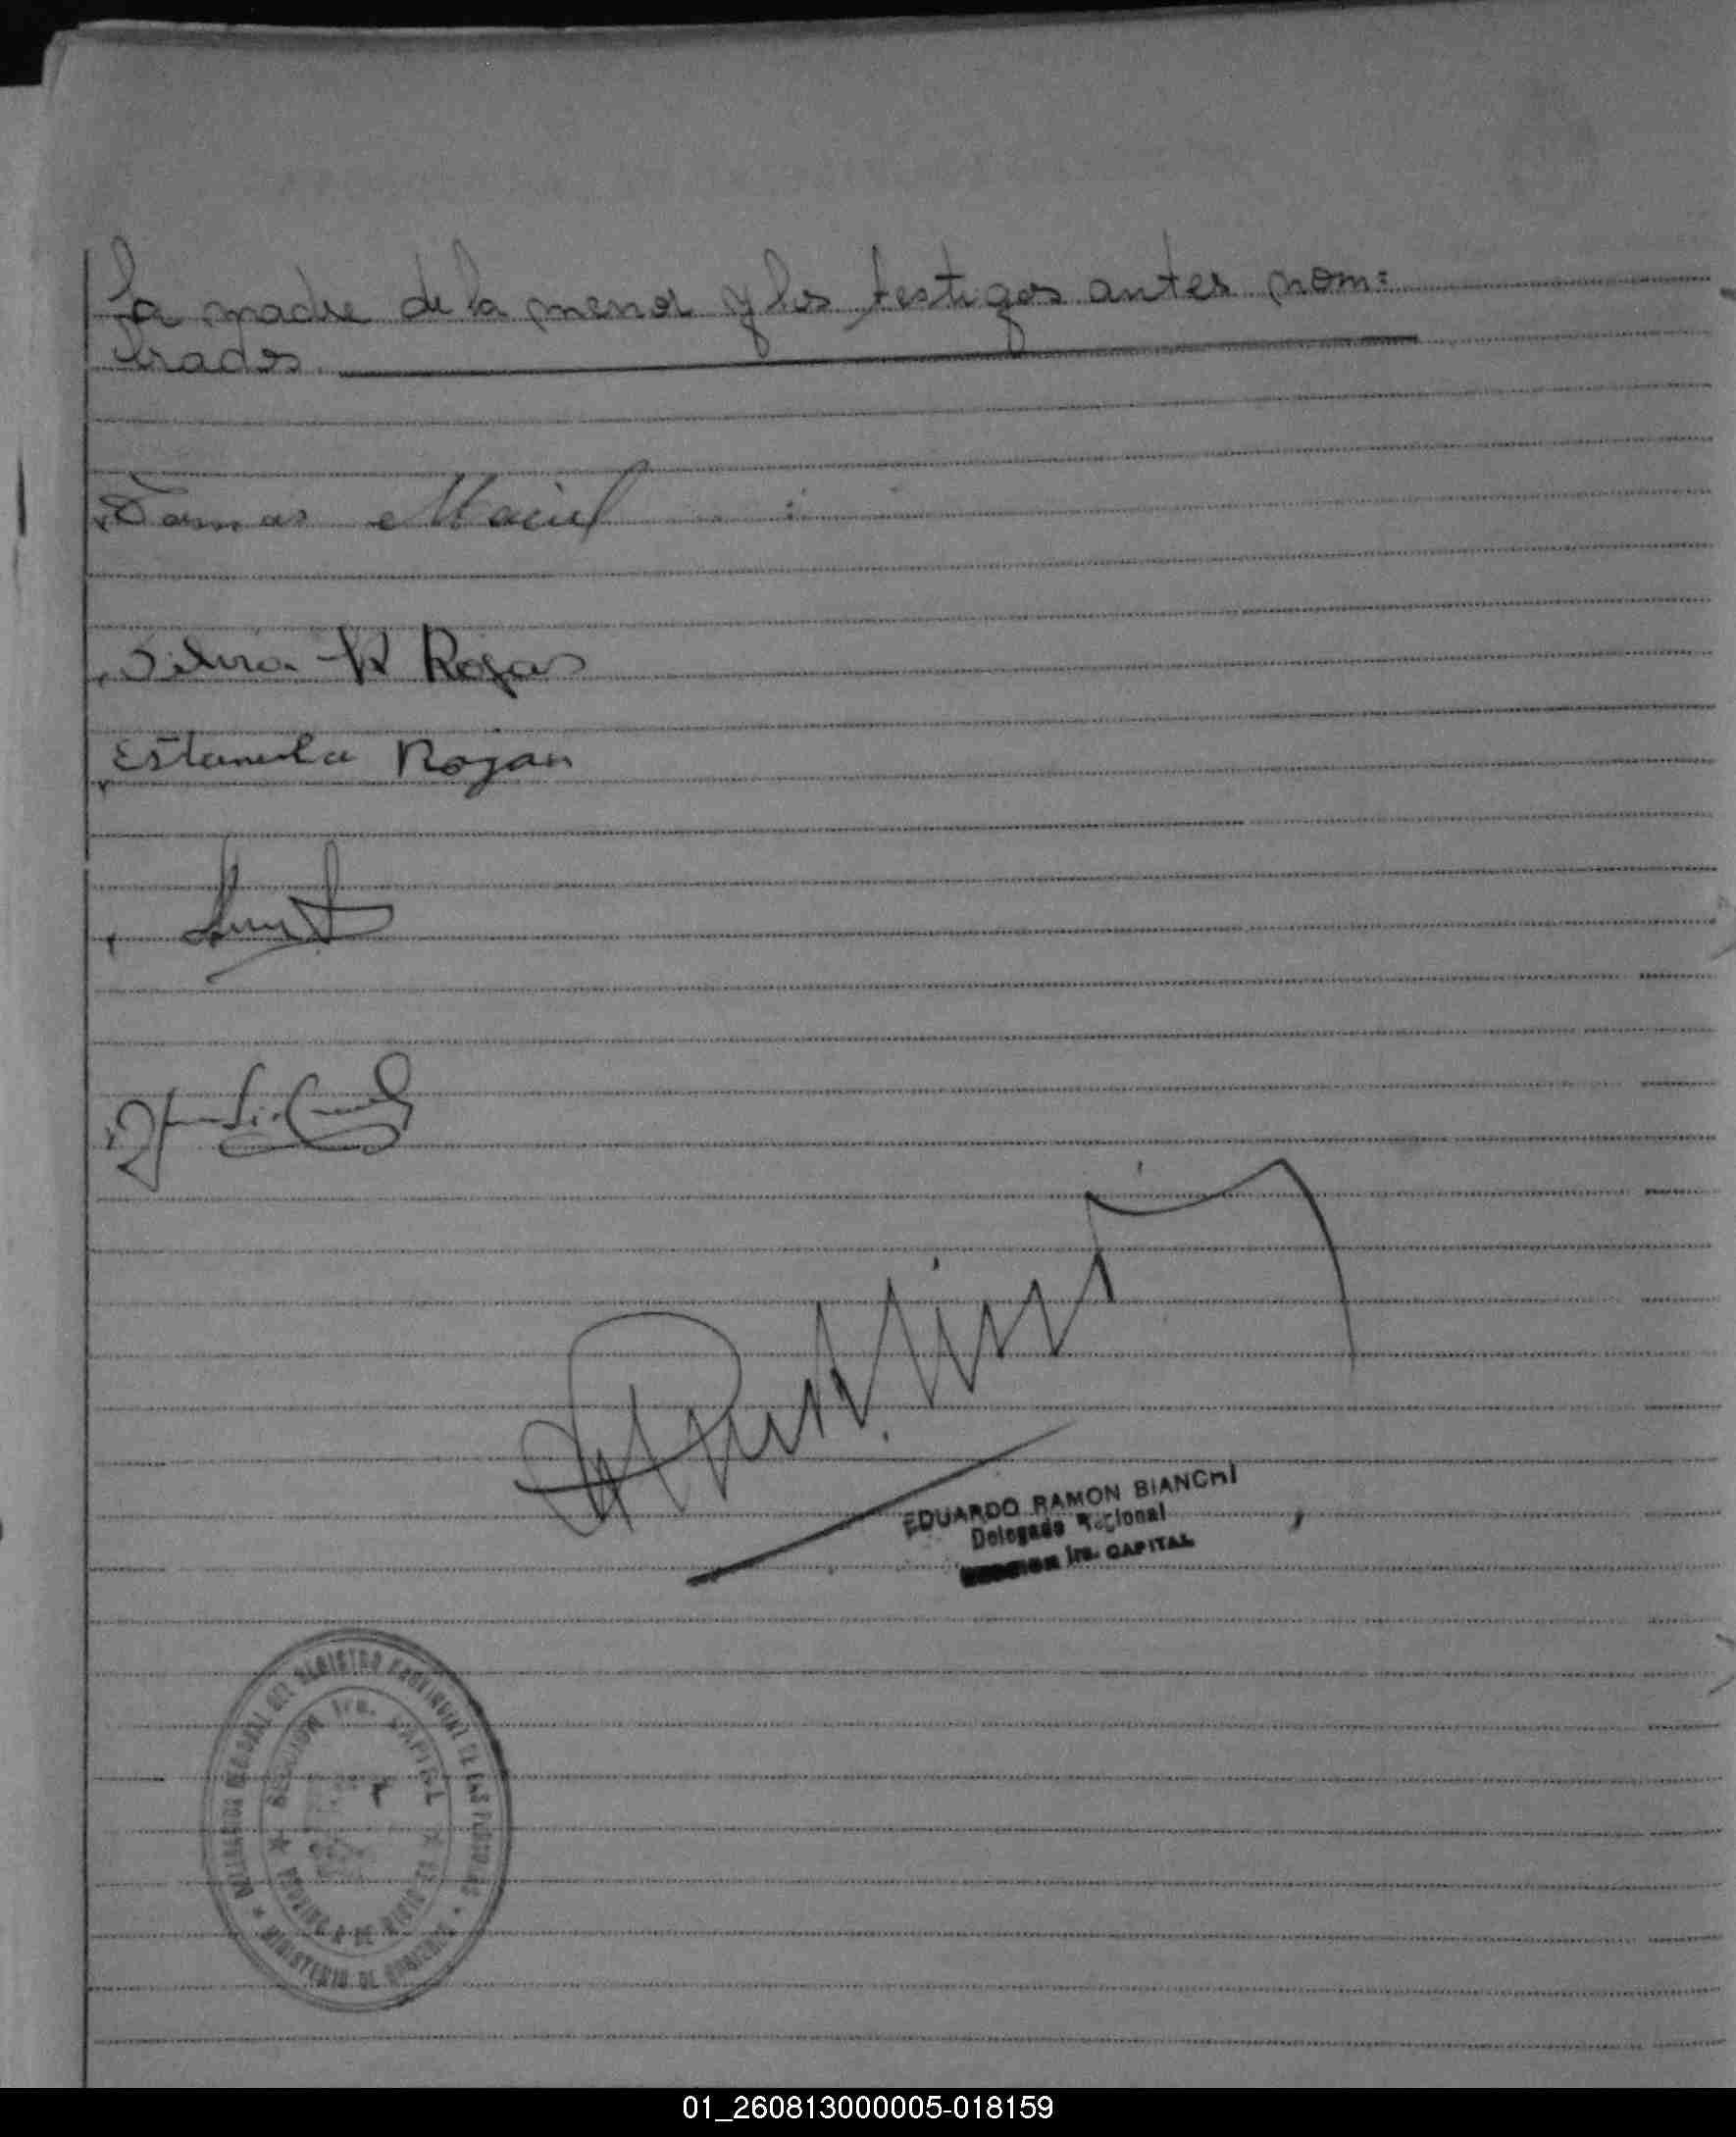 la madre de la menor y los testigos antes nom=
brados.
Tomas Maciel
Silvia N Rojas
Estanila Rojas
EDUARDO RAMON BIANCHI
Delegado Regional
SECCION 1ra. CAPITAL
DELEGACION REGIONAL DEL REGISTRO PROVINCIAL DE LAS PERSONAS
SECCION 1ra. CAPITAL
MINISTERIO DE GOBIERNO
01_260813000005-018159